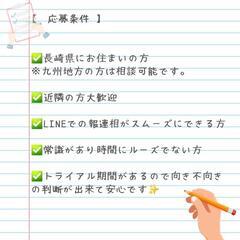 【　応募条件　】
✅長崎県にお住まいの方
※九州地方の方は相談可能です。
✅近隣の方大歓迎
✅LINEでの報連相がスムーズにできる方
✅常識があり時間にルーズでない方
✅トライアル期間があるので向き不向き
の判断が出来て安心です✨